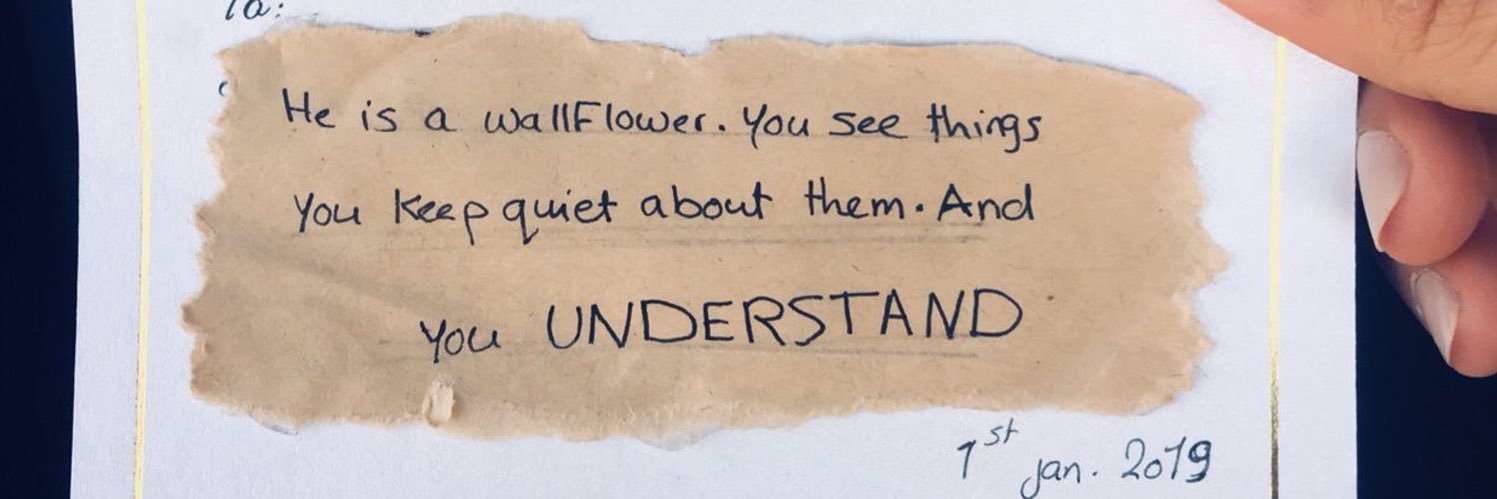 To:
He is a wallFlower. You see things
You keep quiet about them. And
You UNDERSTAND
1st jan. 2019